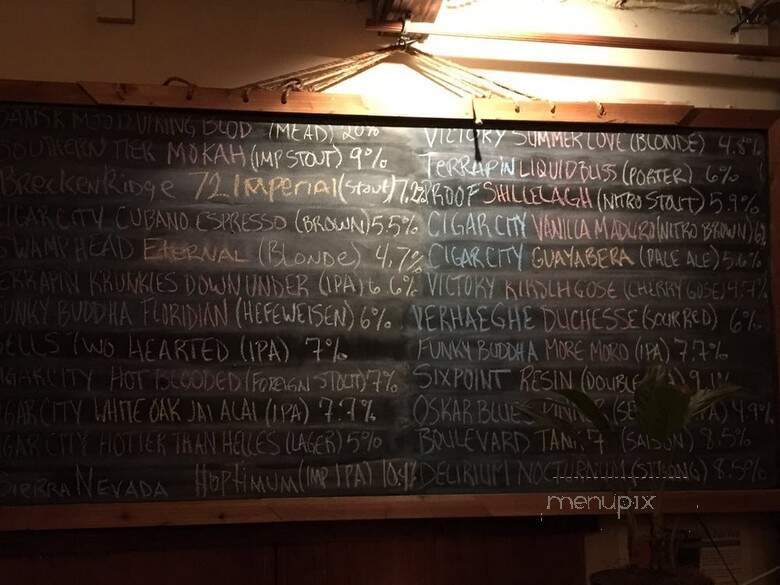 DANSK MJOD VIKING BLOD (MEAD) 20%
SOUTHERN TIER MOKAH (IMP STOUT) 9%
BRECKENRIDGE 72 IMPERIAL (STOUT) 7.2%
CIGAR CITY CUBANO ESPRESSO (BROWN) 5.5%
SWAMP HEAD ETERNAL (BLONDE) 4.7%
TERRAPIN KRUNKLES DOWN UNDER (IPA) 6.6%
FUNKY BUDDHA FLORIDIAN (HEFEWEISEN) 6%
BELLS TWO HEARTED (IPA) 7%
CIGAR CITY HOT BLOODED (FOREIGN STOUT) 7%
CIGAR CITY WHITE OAK JAI ALAI (IPA) 7.7%
CIGAR CITY HOTTER THAN HELLES (LAGER) 5%
SIERRA NEVADA HOPTIMUM (IMP IPA) 10.4%
VICTORY SUMMER LOVE (BLONDE) 4.8%
TERRAPIN LIQUID BLISS (PORTER) 6%
PROOF SHILLELAGH (NITRO STOUT) 5.9%
CIGAR CITY VANILLA MADURO (NITRO BROWN)
CIGAR CITY GUAYABERA (PALE ALE) 5.6%
VICTORY KIRSCH GOSE (CHERRY GOSE) 4.7%
VERHAEGHE DUCHESSE (SOUR RED) 6%
FUNKY BUDDHA MORE MORO (IPA) 7.7%
SIXPOINT RESIN (DOUBLE 9.1%
OSKAR BLUES 4.9%
BOULEVARD TANK 7 (SAISON) 8.5%
DELIRIUM NOCTURNUM (STRONG) 8.5%
menupix